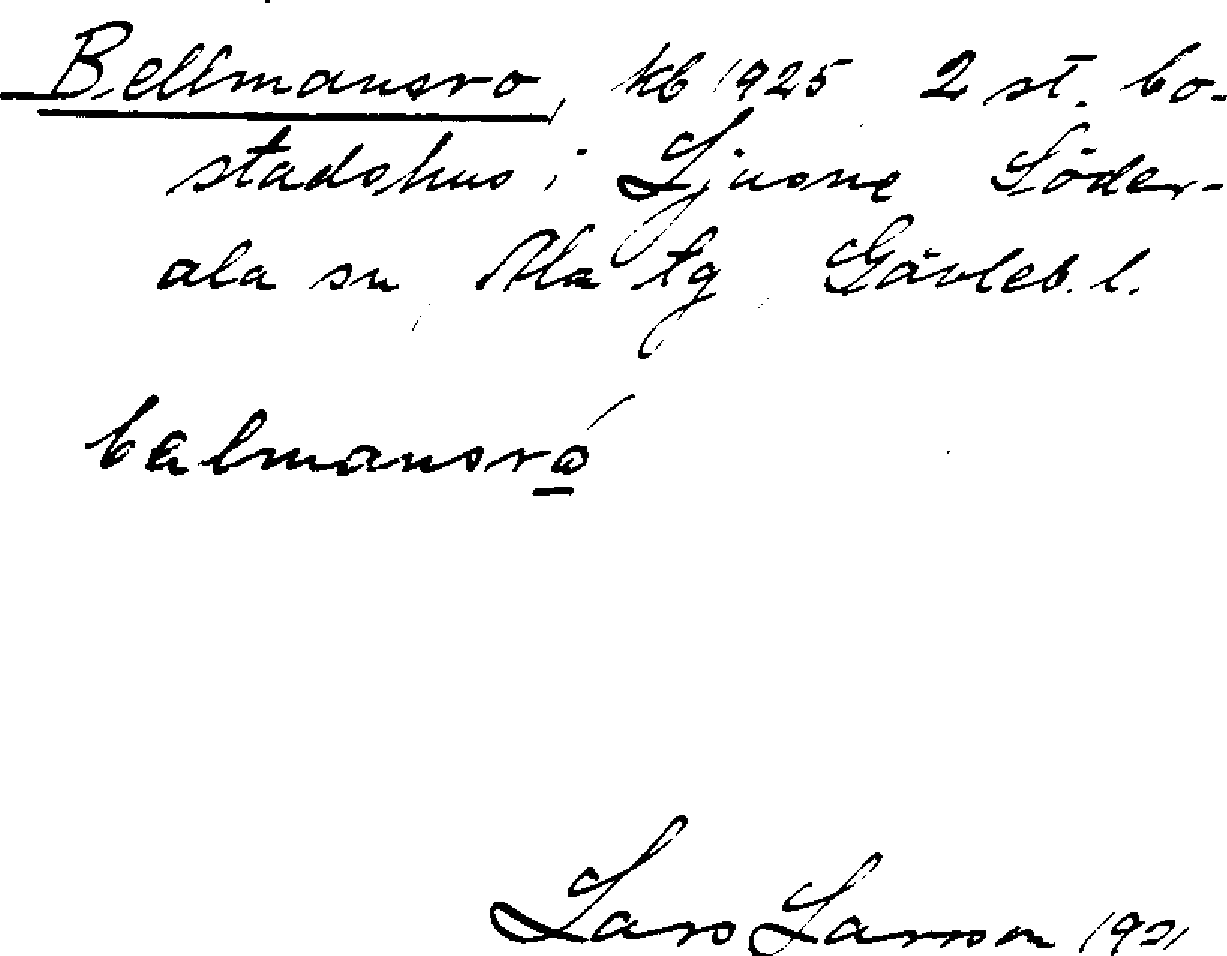 Bellmansro, kb 1925 2 st. bo-
stadshus i Ljusne Söder-
ala sn, Ala tg, Gävleb. l.
balmansró̲
Lars Larsson